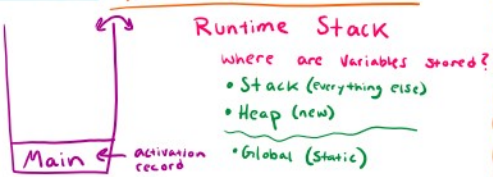 Runtime Stack
where are variables stored?
• Stack (everything else)
• Heap (new)
• Global (static)
Main
activation
record